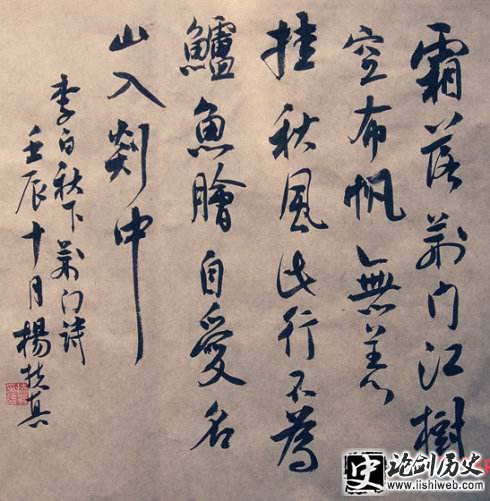 霜落荆门江樹
空布帆無恙
挂秋風此行不為
鱸魚膾自愛名
山入剡中
李白秋下荆门诗
壬辰十月楊扶真
史论剑历史
www.lishiweb.com